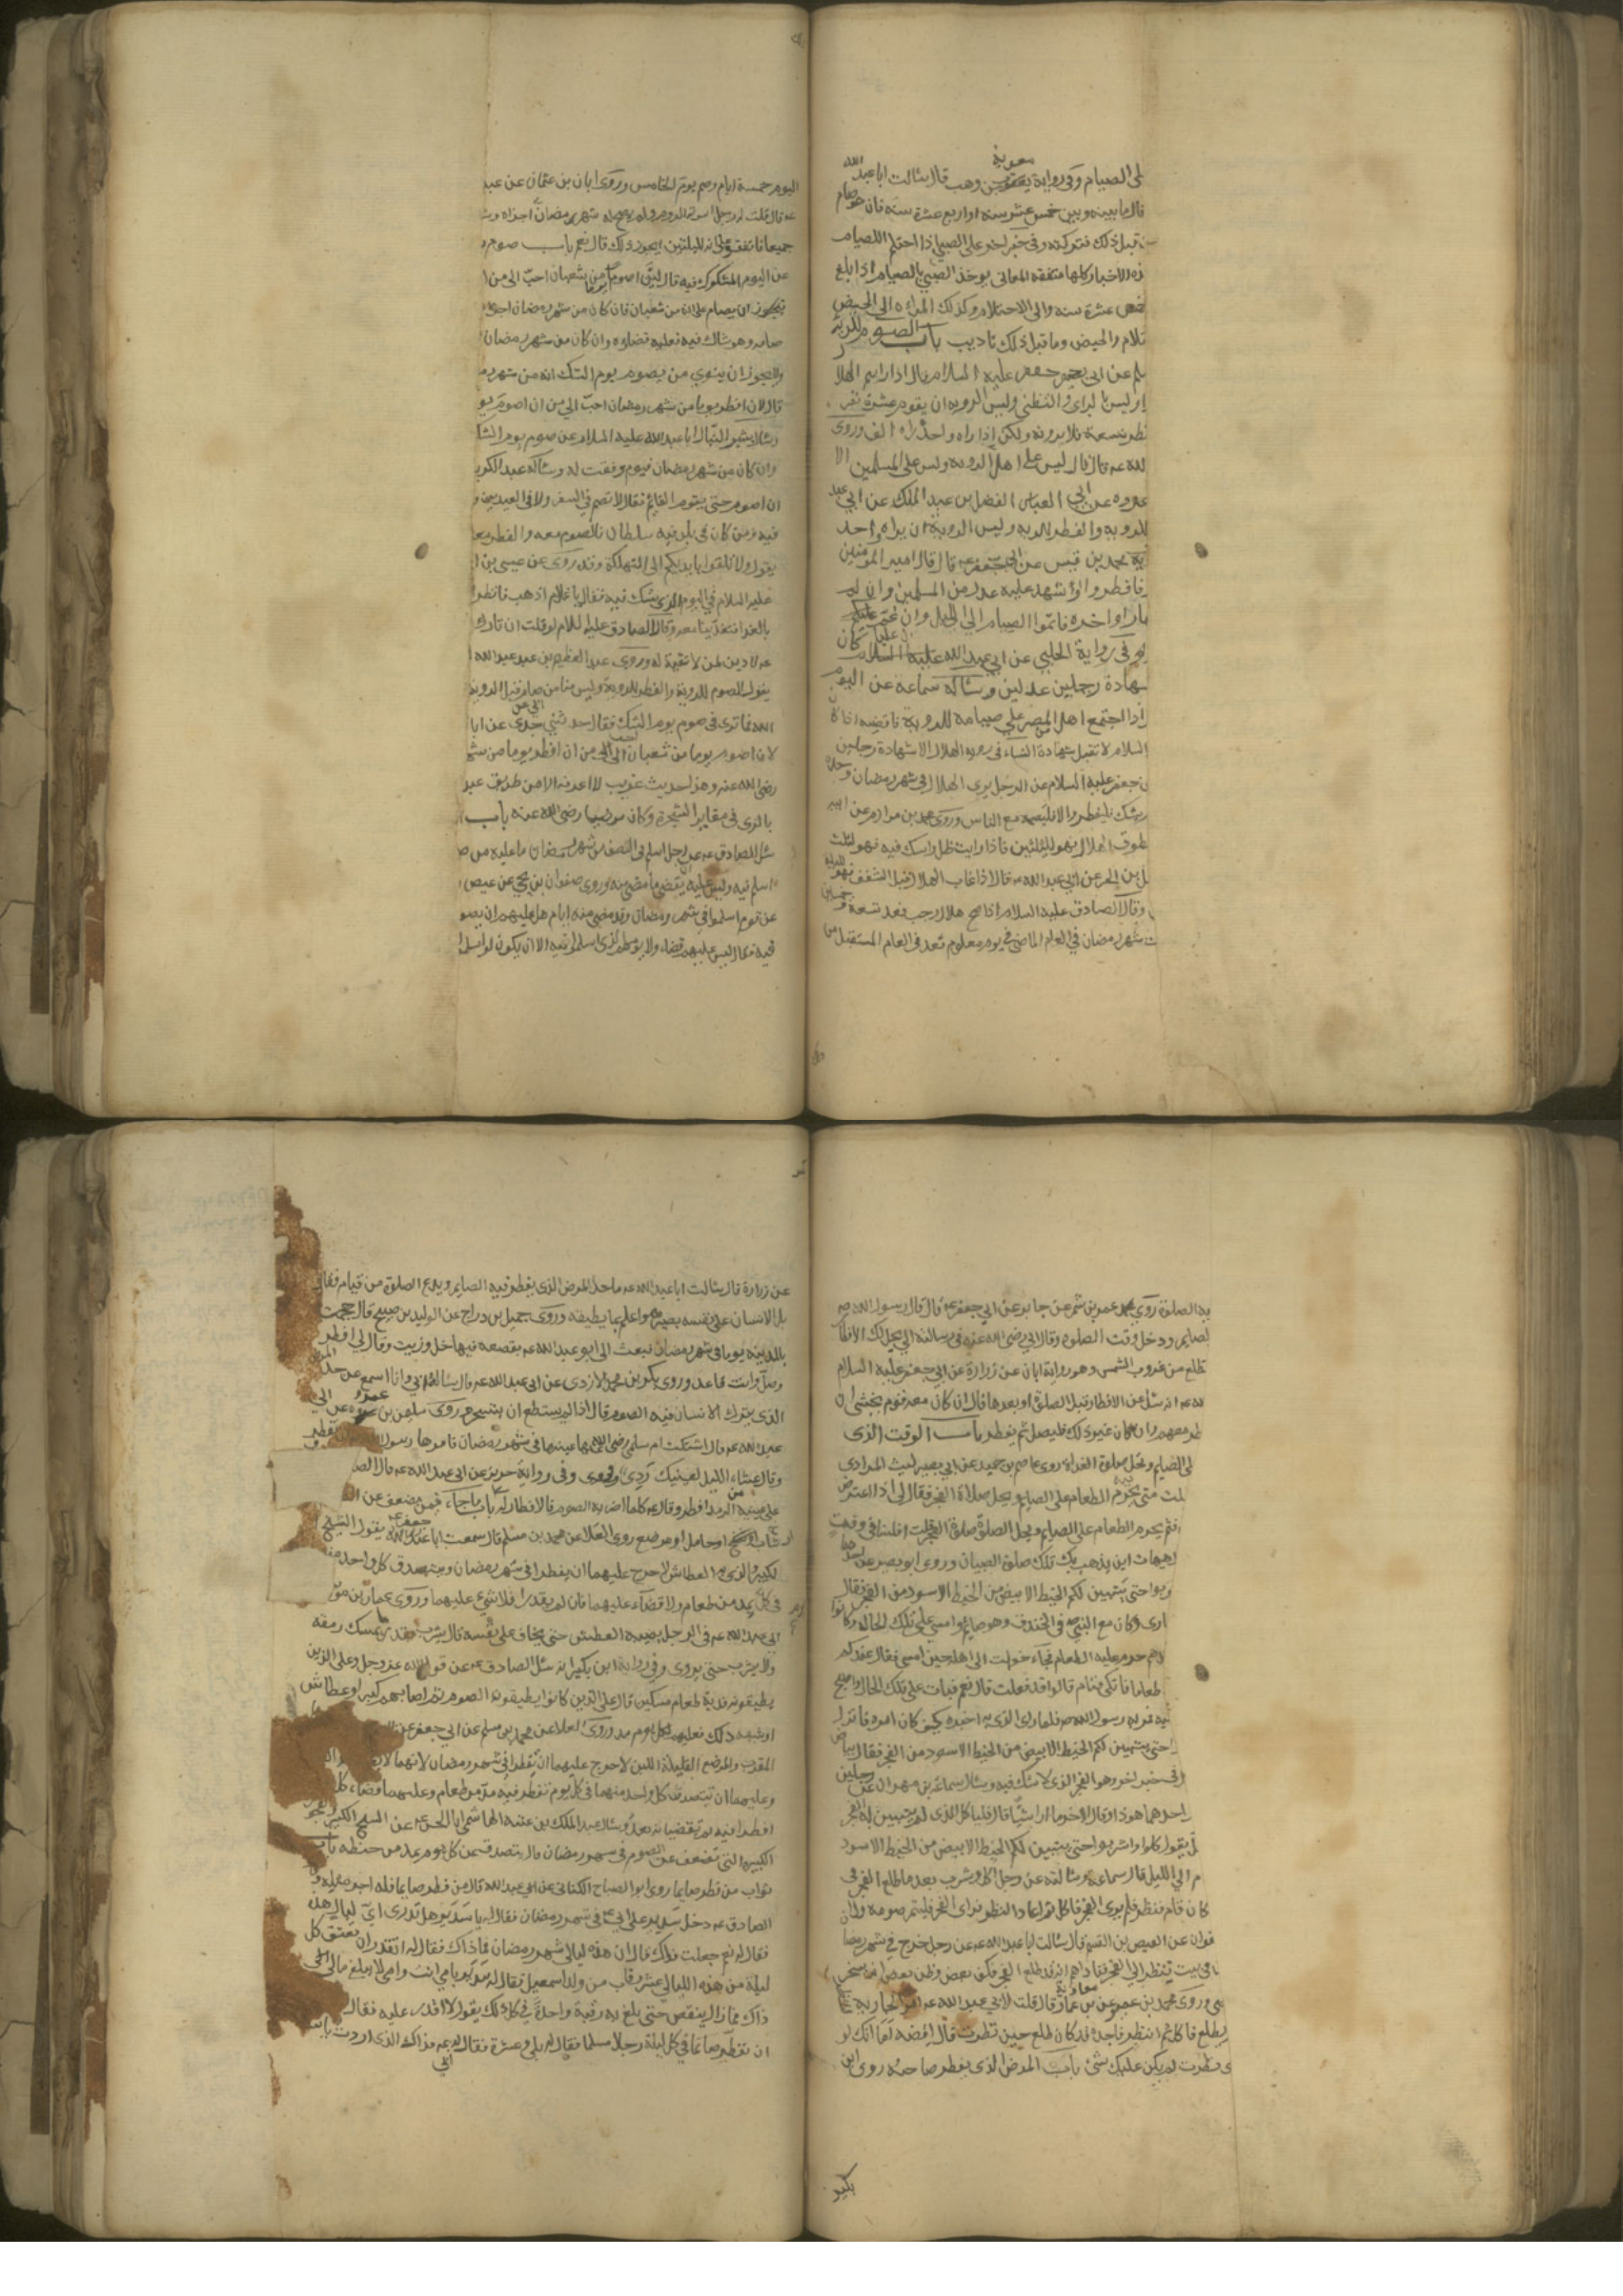 على الصيام وفى رواية معوية بن وهب قال سالت ابا عبد الله
قال ما بينه وبين خمس عشر سنه او اربع عشرة سنه فان هو صام
قبل ذلك فتركته وفى خبر اخر على الصبي اذا احتلم الصيام
الاخبار كلها متفقه المعانى يوخذ الصبي بالصيام اذا بلغ
عشرة سنه والى الاحتلام وكذلك المراه الى الحيض
والحيض وما قبل ذلك تاديب باب الصوم للروية
عن ابى جعفر عليه السلام قال اذا رايتم الهلال
وليس بالراى والتظنى وليس الرويه ان يقوم عشرة نفر
تسعة فلا يرونه ولكن اذا راه واحد راه الف وروى
قال قال ليس على اهل الرويه وليس على المسلمين الا
عن ابي العباس الفضل بن عبد الملك عن ابي عبد
للرويه والفطر للرويه وليس الروية ان يراه واحد
محمد بن قيس عن ابى جعفر ع قال قال امير المومنين
فافطروا او شهد عليه عدل من المسلمين وان لم
او اخره فاتموا الصيام الى الليل وان غم عليكم
فى رواية الحلبي عن ابى عبد الله عليه السلام ان عليا كان
شهادة رجلين عدلين وساله سماعة عن اليوم
اذا اجتمع اهل المصر على صيامه للروية فاقضه اذا كان
السلام لا تقبل شهادة النساء فى رويه الهلال الا شهادة رجلين
بن جعفر عليه السلام عن الرجل يرى الهلال فى شهر رمضان وحده
يشك فليفطر والا فليصمه مع الناس وروى محمد بن مرازم عن ابيه
تطوق الهلال فهو لليلتين فاذا رايت ظل راسك فيه فهو لثلث
بن الحر عن ابى عبد الله ع قال اذا غاب الهلال قبل الشفق فهو لليلة
وقال الصادق عليه السلام اذا صح هلال رجب فعد تسعة وخمسين
شهر رمضان في العام الماضى فى يوم معلوم فعد فى العام المستقبل من
اليوم خمسة ايام وصم يوم الخامس وروى ابان بن عثمان عن عبد
جميعا فاتفق على انه لليلتين ايجوز ذلك قال نعم باب صوم
عن اليوم المشكوك فيه فقال لئن اصوم يوما من شعبان احب الى من ا
فيجوز ان يصام على انه من شعبان فان كان من شهر رمضان اجزاه
صامه وهو شاك فيه فعليه قضاؤه وان كان من شهر رمضان
ولا يجوز ان ينوي من يصوم يوم الشك انه من شهر
قال لان افطر يوما من شهر رمضان احب الي من ان اصوم يو
وسال بشير النبال ابا عبد الله عليه السلام عن صوم يوم الشك
وان كان من شهر رمضان فيوم وفقت له وساله عبد الكريم
ان اصوم حتى يقوم القايم فقال لا تصم في السفر ولا فى العيدين و
فيه ومن كان فى بلد فيه سلطان فالصوم معه والفطر معه
يقول ولا تلقوا بايديكم الى التهلكة وقد روى عن عيسى بن ا
عليه السلام في اليوم الذى يشك فيه فقال يا غلام اذهب فانظر
بالغدا فتغدينا معه وقال الصادق عليه السلام لو قلت ان تارك
لا دين لمن لا تقية له وروى عبد العظيم بن عبد الله
يقول الصوم للروية والفطر للروية وليس منا من صام قبل الروية
الله فما ترى فى صوم يوم الشك فقال حدثنى ابى عن جدى عن ابا
لان اصوم يوما من شعبان احب الى من ان افطر يوما من شهر
رضى الله عنه وهذا حديث غريب لا اعرفه الا من طريق عبد
بالرى فى مقابر الشجرة وكان مرضيا رضى الله عنه باب
سئل الصادق ع عن رجل اسلم فى النصف من شهر رمضان ما عليه من ص
اسلم فيه وليس عليه ان يقضى ما مضى منه وروى صفوان بن يحيى عن عيص
عن قوم اسلموا فى شهر رمضان وقد مضى منه ايام هل عليهم ان يصو
فيه فقال ليس عليهم قضاء ولا يومهم الذى اسلموا فيه الا ان يكون اسلموا
به الصلوة روى عمرو بن شمر عن جابر عن ابى جعفر ع قال قال رسول الله ص
الصايم ودخل وقت الصلوة وقال ابى رضى الله عنه فى رسالته الى يحل لك الافطار
تطلع من غروب الشمس وهو رواية ابان عن زرارة عن ابى جعفر عليه السلام
انه سئل عن الافطار قبل الصلوة او بعدها قال ان كان معه قوم يخشى ان
معهم وان كان غير ذلك فليصل ثم يفطر باب الوقت الذى
على الصايم وتحل صلوة الغداة روى عاصم بن حميد عن ابى بصير ليث المرادى
متى يحرم الطعام على الصايم ويحل صلاة الفجر فقال لي اذا اعترض
فثم يحرم الطعام على الصايم ويحل الصلوة صلوة الفجر قلت افلسنا فى وقت
هيهات اين يذهب بك تلك صلوة الصبيان وروى ابو بصير عن
حتى يتبين لكم الخيط الابيض من الخيط الاسود من الفجر فقال
وكان مع النبى ص فى الخندق وهو صايم وامسى على تلك الحالة وكانوا
حرم عليه الطعام فجاء خوات الى اهله حين امسى فقال عندكم
طعاما فاتكى فنام قالوا قد فعلت قال نعم فبات على تلك الحال واصبح
فمر به رسول الله ص فلما راى الذى به اخبره كيف كان امره فانزل
حتى يتبين لكم الخيط الابيض من الخيط الاسود من الفجر فقال بياض
فى خبر اخر وهو الفجر الذى لا شك فيه وسال سماعة بن مهران عن رجلين
احدهما هو ذا وقال الاخر ما ارى شيئا قال فلياكل الذى لم يتبين له الفجر
يقول كلوا واشربوا حتى يتبين لكم الخيط الابيض من الخيط الاسود
الى الليل قال سماعة وسالته عن رجل اكل وشرب بعد ما طلع الفجر فى
كان قام فنظر فلم يرى الفجر فاكل ثم اعاد النظر فراى الفجر فليتم صومه وان
عن العيص بن القسم قال سالت ابا عبد الله ع عن رجل خرج فى شهر رمضا
فى بيت فنظر الى الفجر فناداهم انه قد طلع الفجر فكف بعض وظن بعض انه يسخر
وروى محمد بن عن معاوية بن عمار قال قلت لابى عبد الله ع آمر الجارية
يطلع فاكل ثم انظر فاجده قد كان طلع حين نظرت قال اقضه اما انك لو
نظرت لم يكن عليك شئ باب المرض الذى يفطر صاحبه روى ابن
بكير
عن زرارة قال سالت ابا عبد الله ع ما حد المرض الذى يفطر فيه الصايم ويدع الصلوة من قيام فقال
بل الانسان على نفسه بصيرة وهو اعلم بما يطيقه وروى جميل بن دراج عن الوليد بن صبيح قال حممت
بالمدينة يوما فى شهر رمضان فبعث الى ابو عبد الله ع بقصعه فيها خل وزيت وقال لي افطر
وصل وانت قاعد وروى بكر بن محمد الازدى عن ابى عبد الله ع قال ساله ابى وانا اسمع عن حد المرض
الذى يترك الانسان فيه الصوم قال اذا لم يستطع ان يتسحر وروى سليمن بن عمرو عن ابى
عبد الله ع قال اشتكت ام سلمى رضى الله عنها عينيها فى شهر رمضان فامرها رسول الله ان تفطر
وقال عشاء الليل لعينيك ردى وفى رواية حريز عن ابى عبد الله ع قال الص
على عينيه من الرمد افطر وقال ع كلما اضر به الصوم فالافطار له باب ما جاء فيمن يضعف عن
شاب او شيخ او حامل او مرضع روى العلا عن محمد بن مسلم قال سمعت ابا جعفر ع يقول الشيخ
الكبير والذى به العطاش لا حرج عليهما ان يفطرا فى شهر رمضان ويتصدق كل واحد منهما
فى كل يوم بمد من طعام ولا قضاء عليهما فان لم يقدرا فلا شئ عليهما وروى عمار بن مو
ابى عبد الله ع فى الرجل يصيبه العطش حتى يخاف على نفسه قال يشرب بقدر ما يمسك رمقه
ولا يشرب حتى يروى وفى رواية ابن بكير انه سئل الصادق ع عن قول الله عز وجل وعلى الذين
يطيقونه فدية طعام مسكين قال على الذين كانوا يطيقون الصوم ثم اصابهم كبر او عطاش
او شبه ذلك فعليهم لكل يوم مد وروى العلا عن محمد بن مسلم عن ابى جعفر ع
المقرب والمرضع القليلة اللبن لا حرج عليهما ان تفطرا فى شهر رمضان لانهما لا
وعليهما ان تتصدق كل واحد منهما فى كل يوم تفطر فيه بمد من طعام وعليهما قضاء كل
افطرتا فيه ثم تقضيانه بعد وسال عبد الملك بن عتبة الهاشمى ابا الحسن ع عن الشيخ الكبير والعجوز
الكبيرة التى تضعف عن الصوم فى شهر رمضان قال تصدق عن كل يوم بمد من حنطه باب
ثواب من فطر صايما روى ابو الصباح الكنانى عن ابى عبد الله قال من فطر صايما فله اجر مثله
الصادق ع دخل سدير على ابى ع فى شهر رمضان فقال له يا سدير هل تدرى اى ليال هذه
فقال له نعم جعلت فداك قال ان هذه ليالى شهر رمضان فما ذاك فقال له اتقدر ان تعتق كل
ليلة من هذه الليالى عشر رقاب من ولد اسمعيل فقال له سدير بابى انت وامى لا يبلغ مالى
ذاك فما زال ينقص حتى بلغ به رقبة واحدة فى كل ذلك يقول لا اقدر عليه فقال
ان تفطر صايما فى كل ليلة رجلا مسلما فقال له بلى وعشرة فقال له ع فذاك الذى اردت